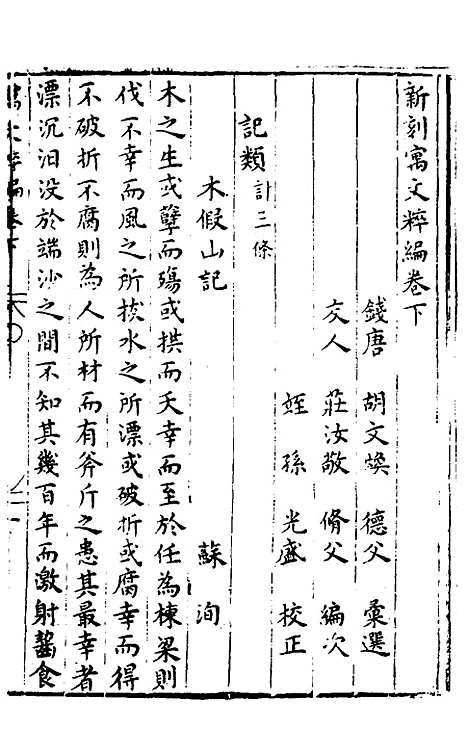 新刻寓文粹編卷下
錢唐 胡文煥 德父 彙選
友人 莊汝敬 脩父 編次
姪孫 光盛 校正
記類計三條
木假山記 蘇洵
木之生或孽而殤或拱而夭幸而至於任為棟梁則
伐不幸而風之所拔水之所漂或破折或腐幸而得
不破折不腐則為人所材而有斧斤之患其最幸者
漂沉汨没於端沙之間不知其幾百年而激射齧食